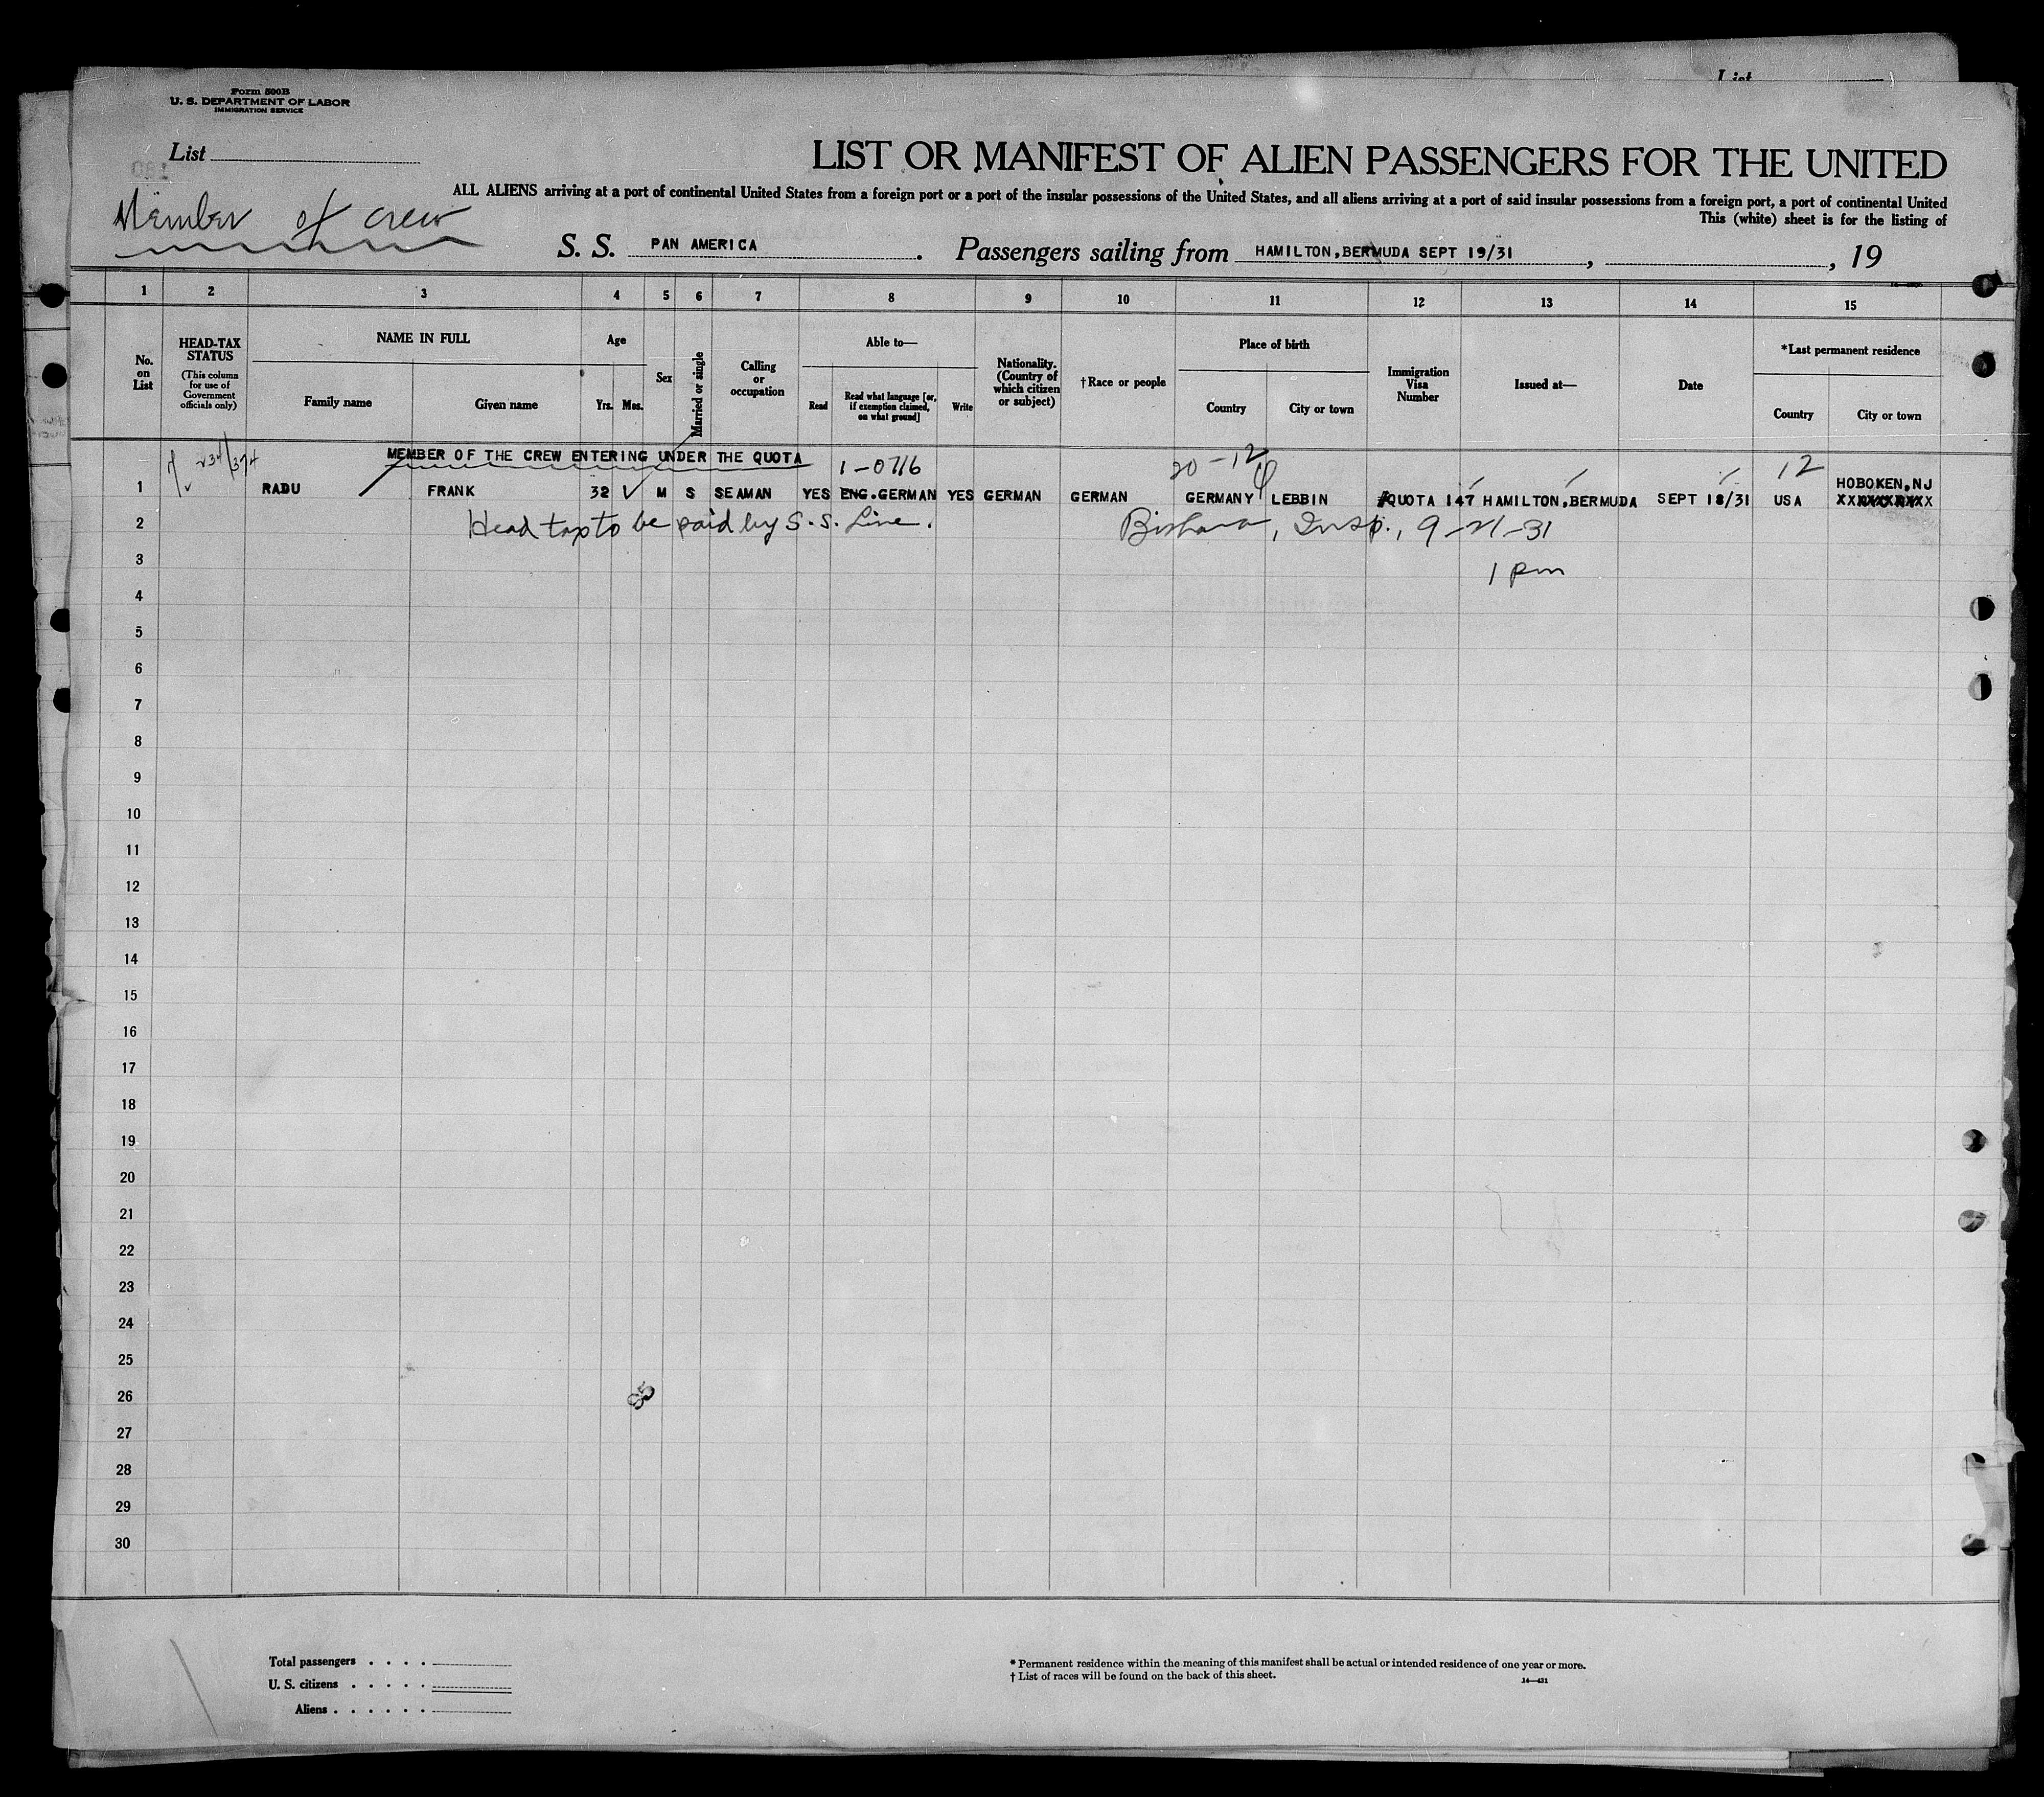 List
Form 500B
U. S. DEPARTMENT OF LABOR
IMMIGRATION SERVICE
List
LIST OR MANIFEST OF ALIEN PASSENGERS FOR THE UNITED
ALL ALIENS arriving at a port of continental United States from a foreign port or a port of the insular possessions of the United States, and all aliens arriving at a port of said insular possessions from a foreign port, a port of continental United
This (white) sheet is for the listing of
Member of crew
S. S. PAN AMERICA. Passengers sailing from HAMILTON,BERMUDA SEPT 19/31, , 19
1 2 3 4 5 6 7 8 9 10 11 12 13 14 15
No. on List
HEAD-TAX STATUS
(This column for use of Government officials only)
NAME IN FULL
Family name
Given name
Age
Yrs. Mos.
Sex
Married or single
Calling or occupation
Able to—
Read
Read what language [or, if exemption claimed, on what ground]
Write
Nationality. (Country of which citizen or subject)
†Race or people
Place of birth
Country
City or town
Immigration Visa Number
Issued at—
Date
*Last permanent residence
Country
City or town
MEMBER OF THE CREW ENTERING UNDER THE QUOTA
1-0716
20-12
12
HOBOKEN,NJ
1 RADU FRANK 32 M S SEAMAN YES ENG.GERMAN YES GERMAN GERMAN GERMANY LEBBIN QUOTA 147 HAMILTON,BERMUDA SEPT 18/31 USA
2 Head tax to be paid by S.S. Line. Insp., 9-21-31
3 1 pm
4
5
6
7
8
9
10
11
12
13
14
15
16
17
18
19
20
21
22
23
24
25
26
85
27
28
29
30
Total passengers . . . .
U. S. citizens . . . . .
Aliens . . . . . .
* Permanent residence within the meaning of this manifest shall be actual or intended residence of one year or more.
† List of races will be found on the back of this sheet.
14—431